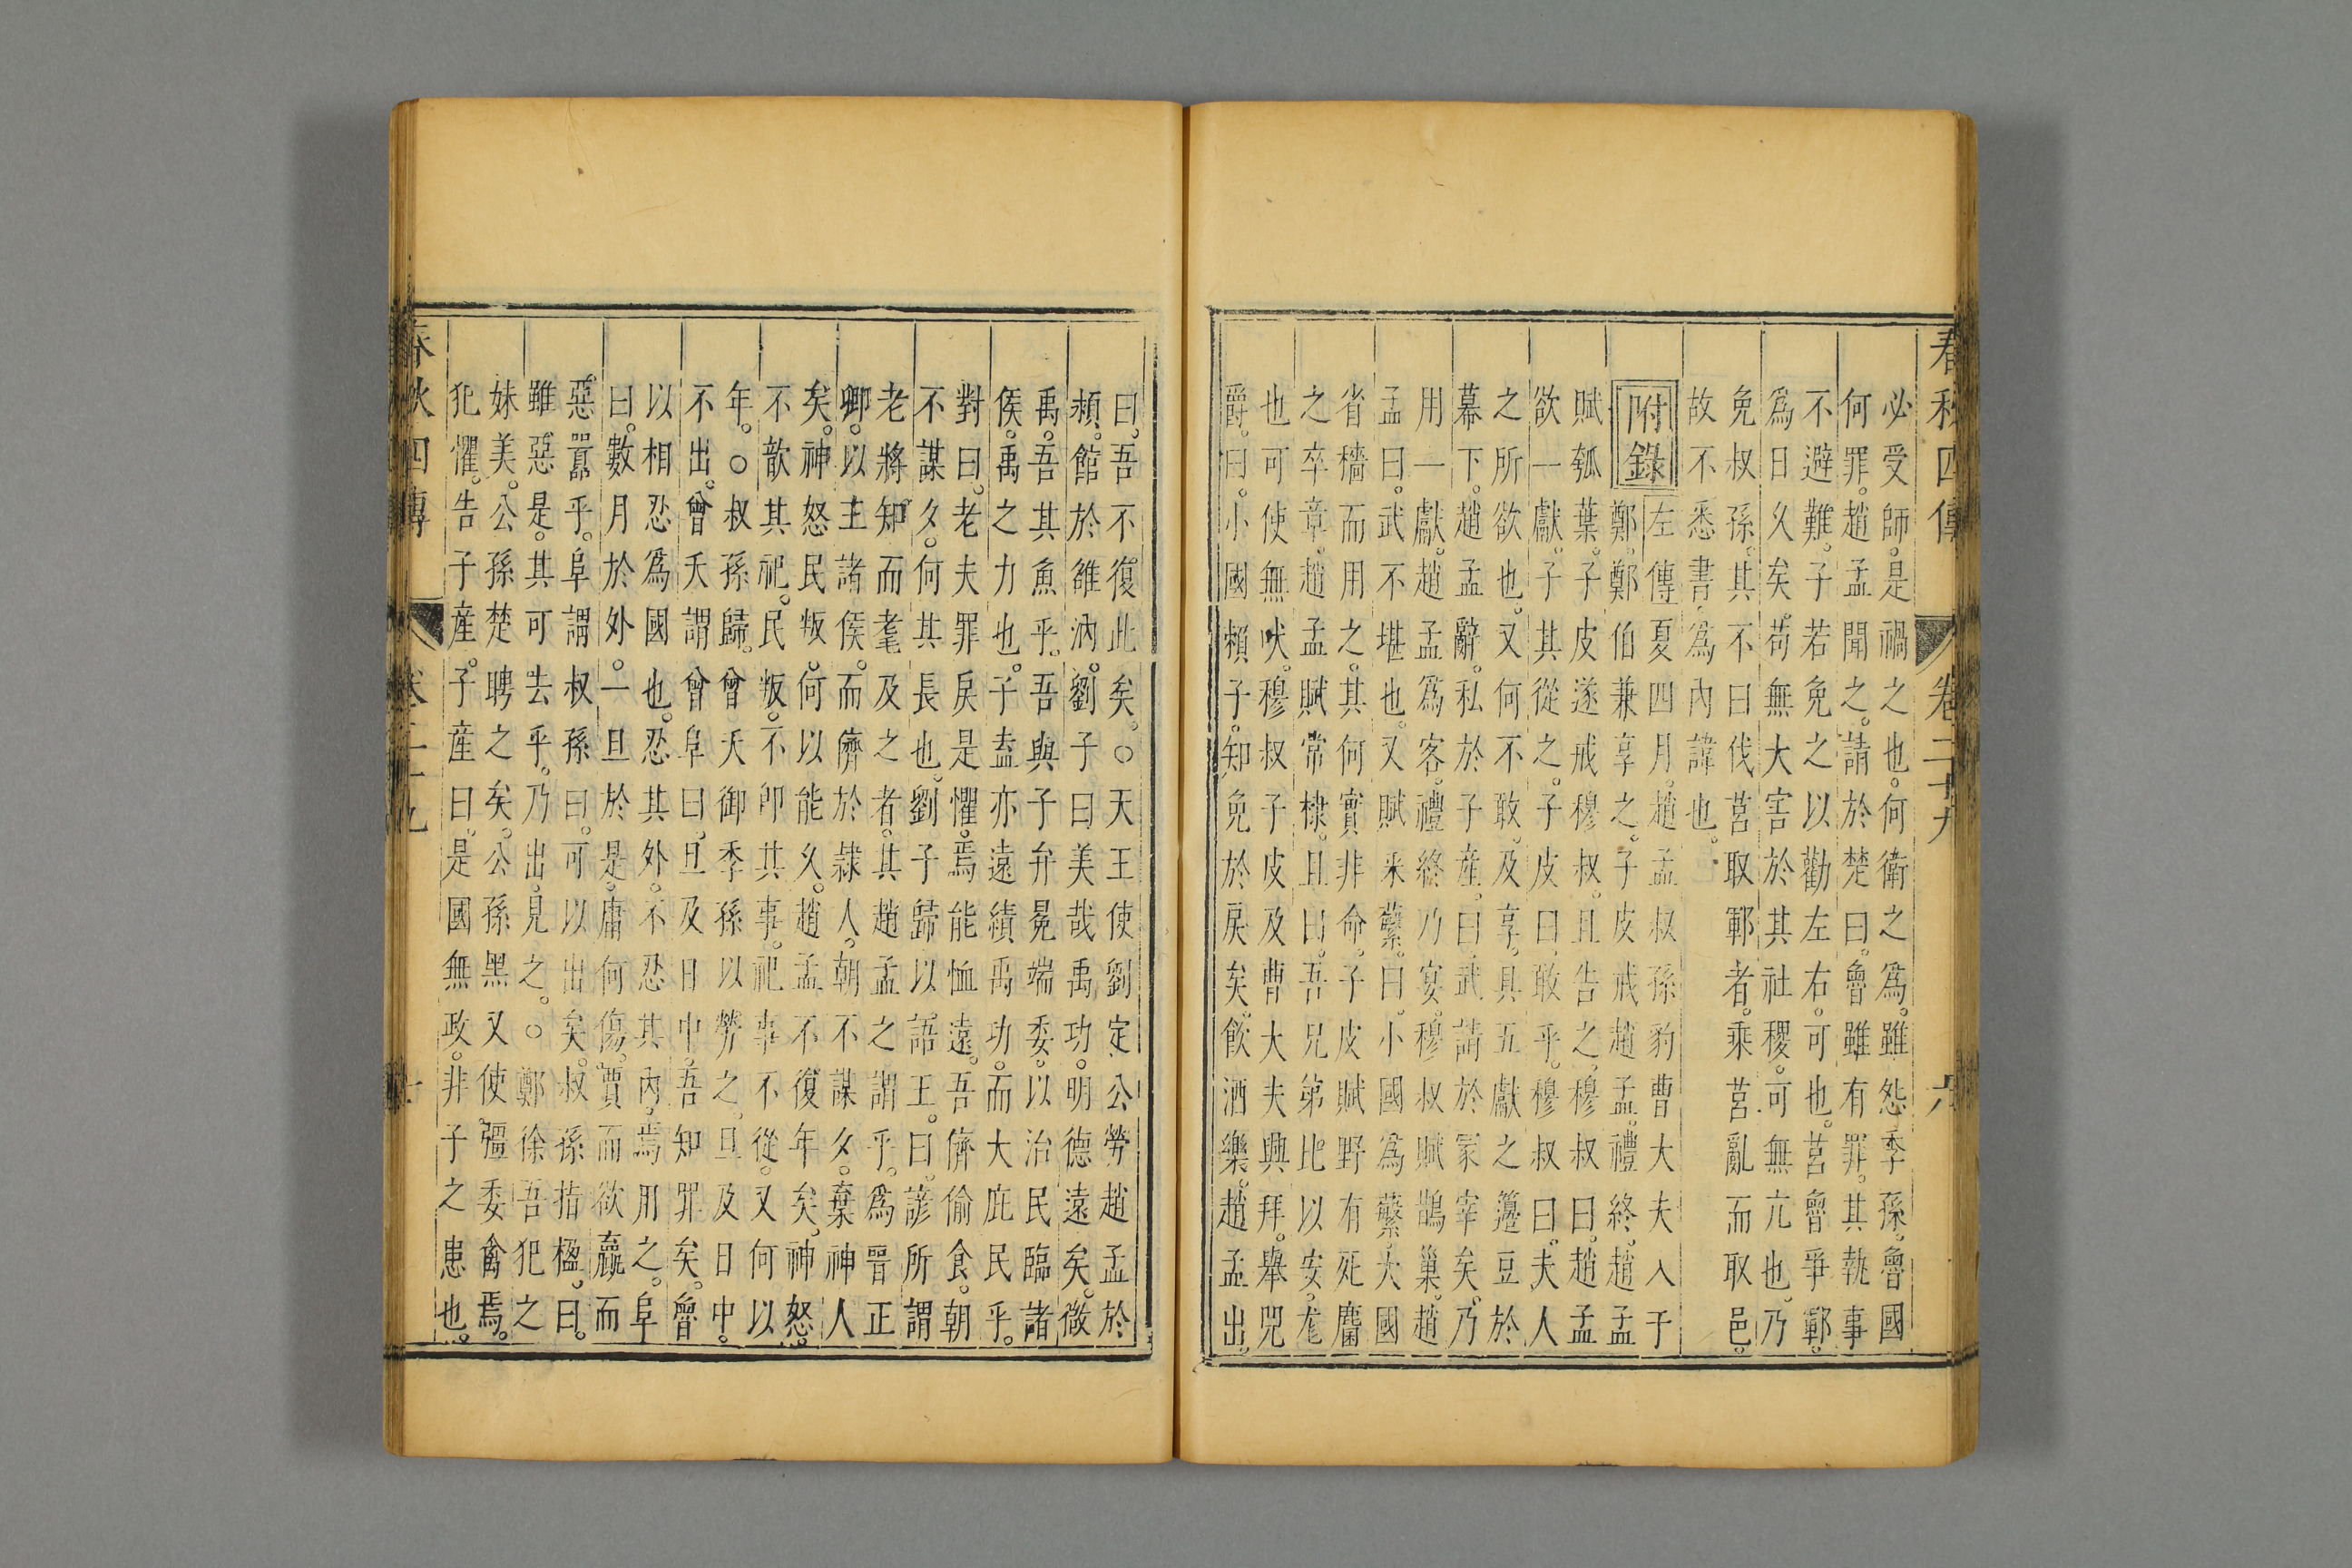 春秋四傳 卷二十九 六
必受師。是禍之也。何衛之爲。雖怨季孫。魯國
何罪。趙孟聞之。請於楚曰。魯雖有罪。其執事
不避難。子若免之以勸左右。可也。莒魯爭鄆。
爲日久矣。苟無大害於其社稷。可無亢也。乃
免叔孫。其不曰伐莒取鄆者。乘莒亂而取邑。
故不悉書。爲內諱也。
附錄 左傳夏四月。趙孟叔孫豹曹大夫入于
鄭。鄭伯兼享之。子皮戒趙孟。禮終。趙孟
賦瓠葉。子皮遂戒穆叔。且告之。穆叔曰。趙孟
欲一獻。子其從之。子皮曰。敢乎。穆叔曰。夫人
之所欲也。又何不敢。及享。具五獻之籩豆於
幕下。趙孟辭。私於子產。曰。武請於冢宰矣。乃
用一獻。趙孟爲客。禮終乃宴。穆叔賦鵲巢。趙
孟曰。武不堪也。又賦采蘩。曰。小國爲蘩。大國
省穡而用之。其何實非命。子皮賦野有死麕
之卒章。趙孟賦常棣。且曰。吾兄弟比以安。尨
也可使無吠。穆叔子皮及曹大夫興拜。舉兕
爵。曰。小國賴子。知免於戾矣。飲酒樂。趙孟出。
曰。吾不復此矣。○天王使劉定公勞趙孟於
潁。館於雒汭。劉子曰美哉禹功。明德遠矣。微
禹。吾其魚乎。吾與子弁冕端委。以治民臨諸
侯。禹之力也。子盍亦遠績禹功。而大庇民乎。
對曰。老夫罪戾是懼。焉能恤遠。吾儕偷食。朝
不謀夕。何其長也。劉子歸以語王。曰。諺所謂
老將知而耄及之者。其趙孟之謂乎。爲晉正
卿。以主諸侯。而儕於隸人。朝不謀夕。棄神人
矣。神怒民叛。何以能久。趙孟不復年矣。神怒。
不歆其祀。民叛。不即其事。祀事不從。又何以
年。○叔孫歸。曾夭御季孫以勞之。旦及日中。
不出。曾夭謂曾阜曰。旦及日中。吾知罪矣。魯
以相忍爲國也。忍其外。不忍其內。焉用之。阜
曰。數月於外。一旦於是。庸何傷。賈而欲贏而
惡嚻乎。阜謂叔孫曰。可以出矣。叔孫指楹。曰。
雖惡是。其可去乎。乃出見之。○鄭徐吾犯之
妹美。公孫楚聘之矣。公孫黑又使彊委禽焉。
犯懼。告子產。子產曰。是國無政。非子之患也。
春秋四傳 卷二十九